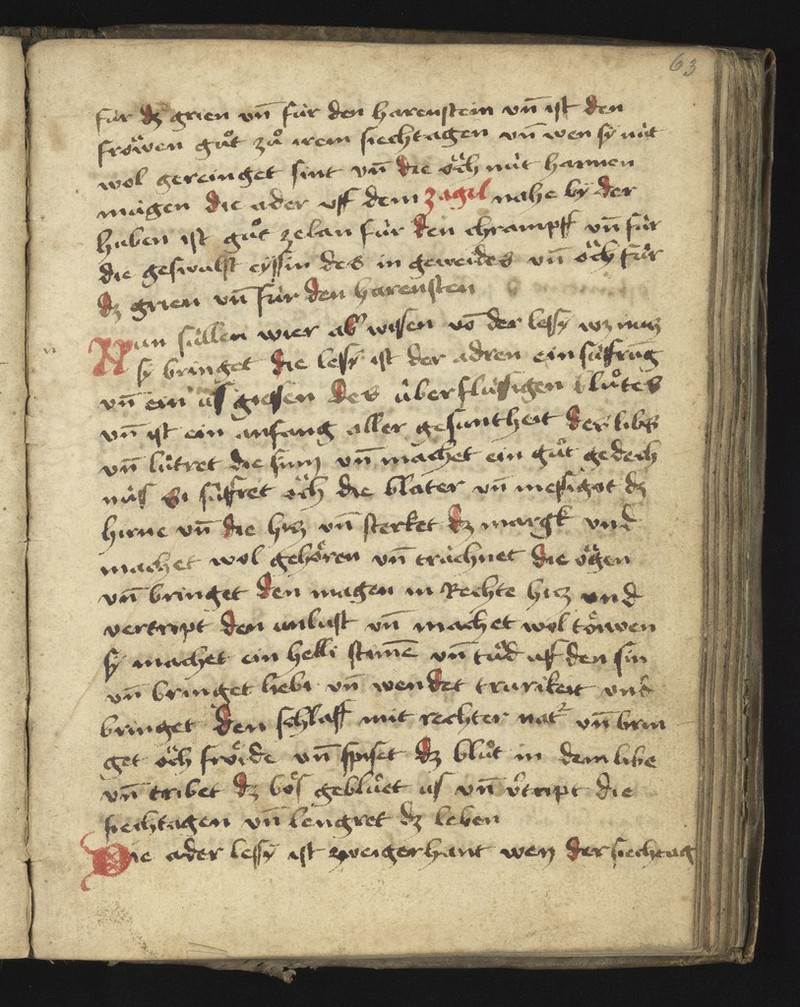 63
für dz grien vn̄ für den harenstein vn̄ ist den
frowen gůt zů irem siechtagen vn̄ wen sy nüt
wol gereinget sint vn̄ die öch nüt harnen
mügen die ader vff dem zagel nahe by der
haben ist gůt zelan für den chrampff vn̄ für
die geswulst eyssin des in geweides vn̄ öch für
dz grien vn̄ für den harensten
Nun süllen wier ab' wisen vō der lessy wz nutz
sy bringet die lessy ist der adren ein süffrūg
vn̄ ein us giesen des überflüssigen blůtes
vn̄ ist ein anfang aller gesuntheit des libs
vn̄ lütret die sinn vn̄ machet ein gůt gedech
nüs si süffret öch die blater vn̄ messigot dz
hirne vn̄ die hitz vn̄ sterket dz margk vnd
machet wol gehören vn̄ trüchnet die ögen
vn̄ bringet den magen in Rechte hitz vnd
vertript den unlust vn̄ machet wol töiwen
sy machet ein helli stimē vn̄ tůd uff den sin
vn̄ bringet liebi vn̄ wendet trurikeit vnd
bringet den schlaff mit rechter nat' vn̄ brin
get öch fröide vn̄ spiset dz blůt in dem libe
vn̄ tribet dz bös geblůet us vn̄ v'tript die
siechtagen vn̄ lengret dz leben
Die ader lessy ist zweigerhant wen der siechtag